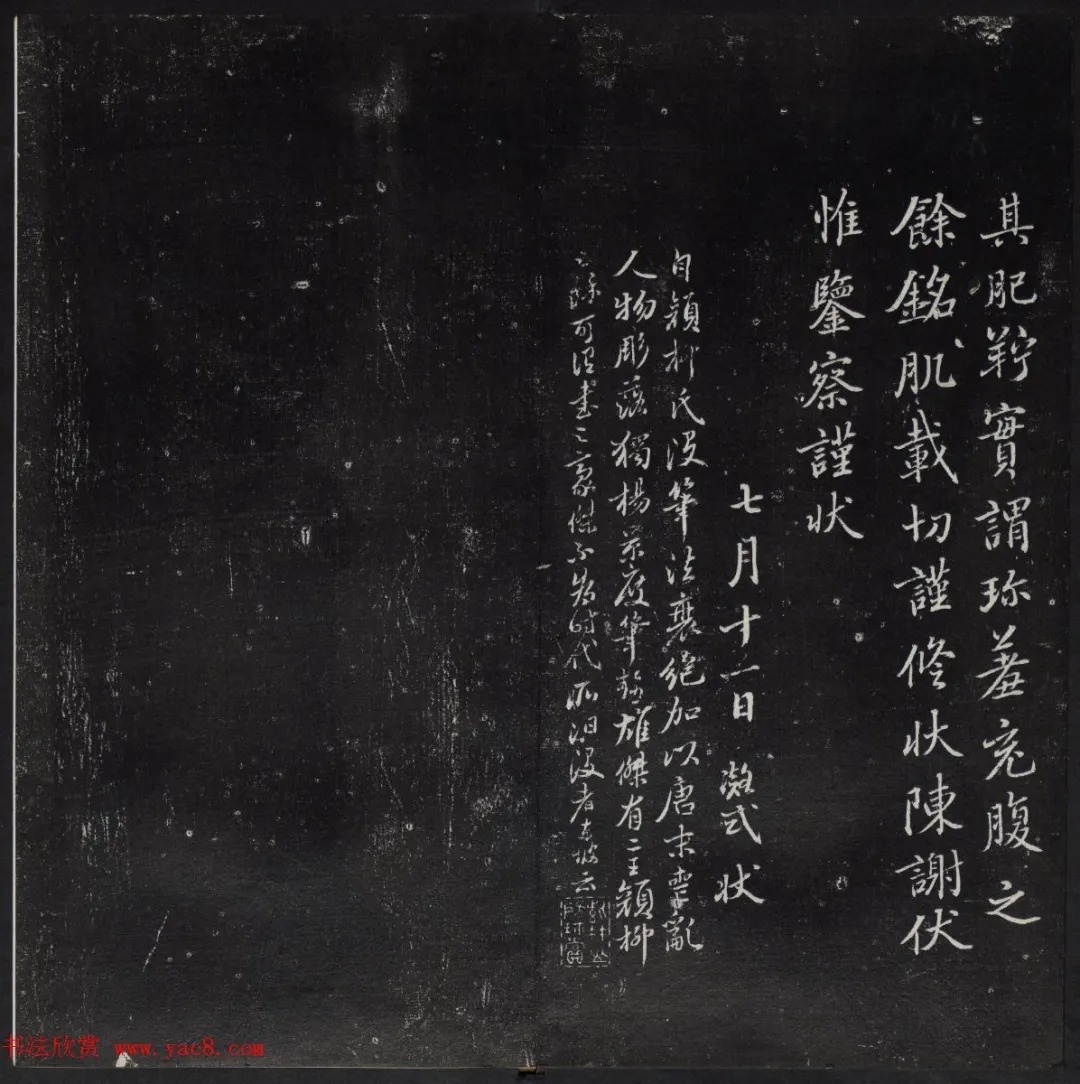 其肥羜實謂珍羞充腹之
餘銘肌載切謹修狀陳謝伏
惟鑒察謹狀
七月十一日凝式狀
自顏柳氏沒筆法衰絕加以唐末喪亂
人物彫落獨楊公凝式筆跡雄傑有二王顏柳
之餘可謂書之豪傑不為時代所汩沒者東坡云
书法欣赏 www.yac8.com